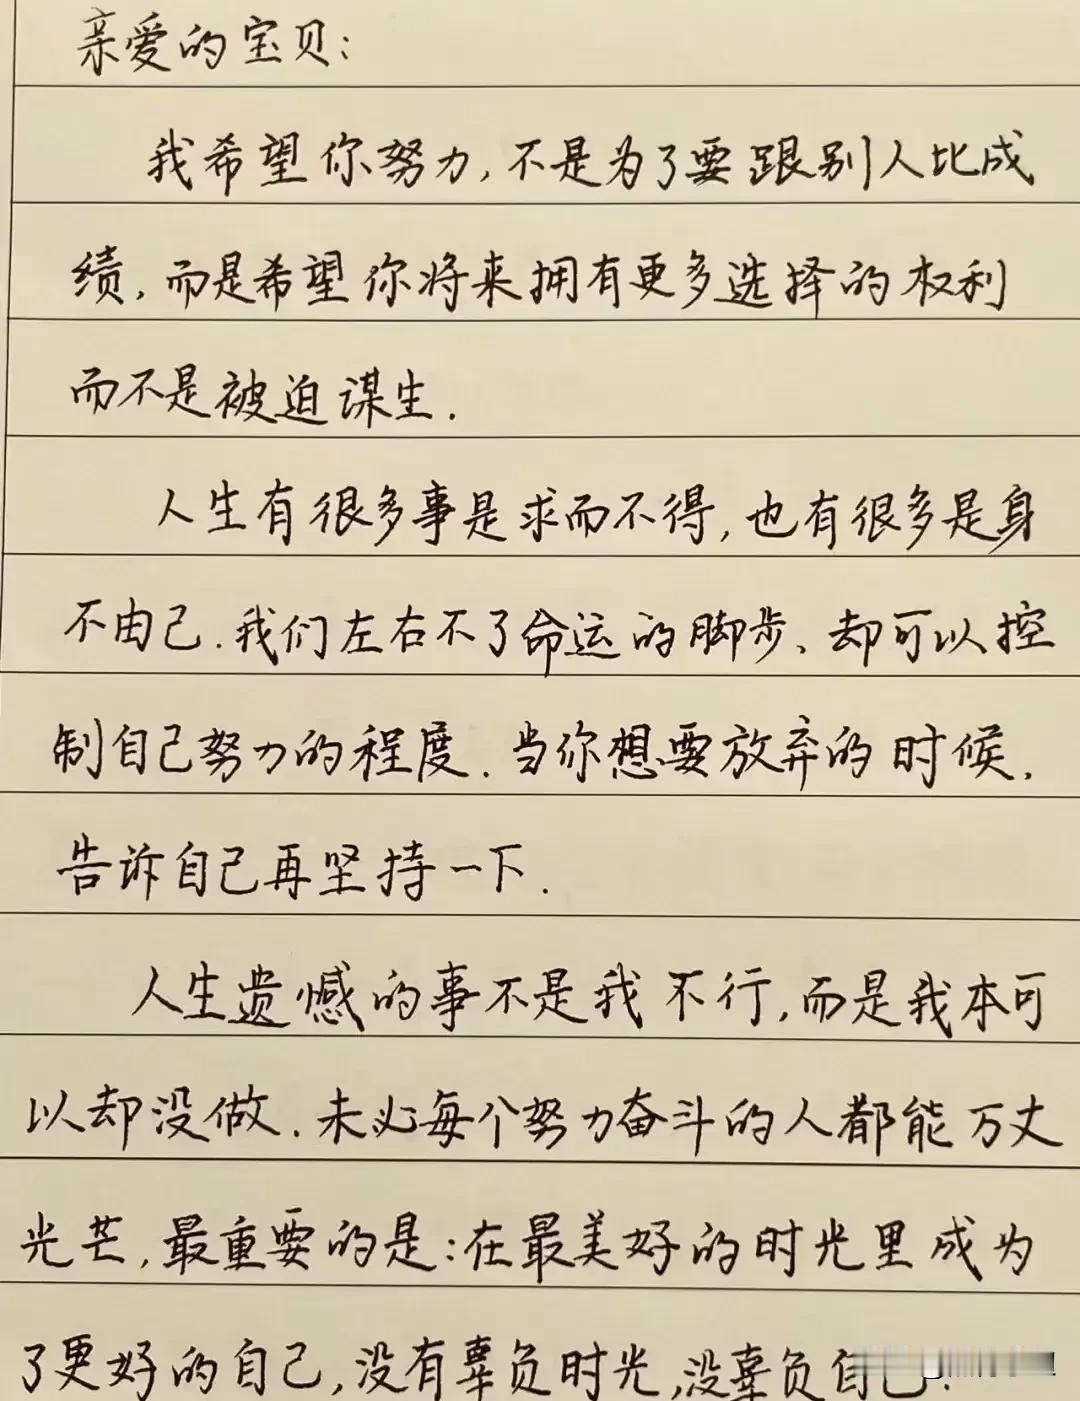 亲爱的宝贝：
我希望你努力，不是为了要跟别人比成
绩，而是希望你将来拥有更多选择的权利
而不是被迫谋生.
人生有很多事是求而不得，也有很多是身
不由己.我们左右不了命运的脚步、却可以控
制自己努力的程度.当你想要放弃的时候.
告诉自己再坚持一下.
人生遗憾的事不是我不行，而是我本可
以却没做.未必每个努力奋斗的人都能万丈
光芒，最重要的是：在最美好的时光里成为
了更好的自己，没有辜负时光，没辜负自己.